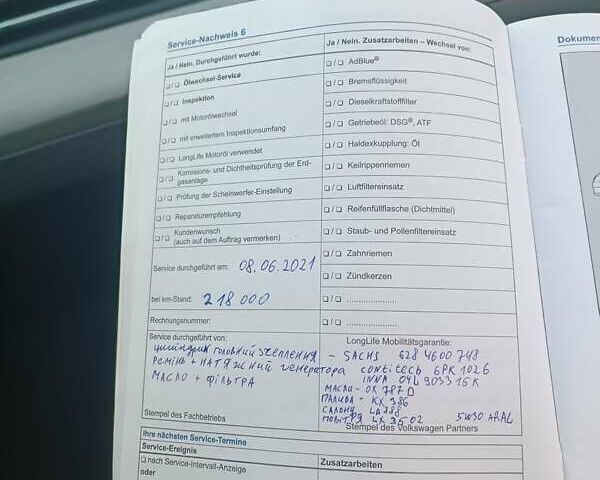 Service-Nachweis 6
Dokumen
Ja / Nein. Durchgeführt wurde:
Ja / Nein. Zusatzarbeiten – Wechsel von:
❑ / ❑ Ölwechsel-Service
❑ / ❑ AdBlue®
❑ / ❑ Inspektion
❑ / ❑ Bremsflüssigkeit
❑ / ❑ mit Motorölwechsel
❑ / ❑ Dieselkraftstofffilter
❑ / ❑ mit erweitertem Inspektionsumfang
❑ / ❑ Getriebeöl: DSG®, ATF
❑ / ❑ LongLife Motoröl verwendet
❑ / ❑ Haldexkupplung: Öl
❑ / ❑ Korrosions- und Dichtheitsprüfung der Erd-
gasanlage
❑ / ❑ Keilrippenriemen
❑ / ❑ Prüfung der Scheinwerfer-Einstellung
❑ / ❑ Luftfiltereinsatz
❑ / ❑ Reparaturempfehlung
❑ / ❑ Reifenfüllflasche (Dichtmittel)
❑ / ❑ Kundenwunsch
(auch auf dem Auftrag vermerken)
❑ / ❑ Staub- und Pollenfiltereinsatz
❑ / ❑ Zahnriemen
Service durchgeführt am: 08.06.2021
❑ / ❑ Zündkerzen
bei km-Stand: 218 000
❑ / ❑ ....................
Rechnungsnummer:
❑ / ❑ ....................
Service durchgeführt von:
LongLife Mobilitätsgarantie:
циліндрик головний зчеплення – SACHS 6284600748
Ремінь + натяжний генератора contitech 6PK 1026
INNA 04L 903315K
масло + фільтра
масла - OX 787 D
палива - KX 386
салону LA888
повітря LX 3502
5W30 ARAL
Stempel des Fachbetriebs
Stempel des Volkswagen Partners
Ihre nächsten Service-Termine
Service-Ereignis
Zusatzarbeiten
❑ nach Service-Intervall-Anzeige
oder